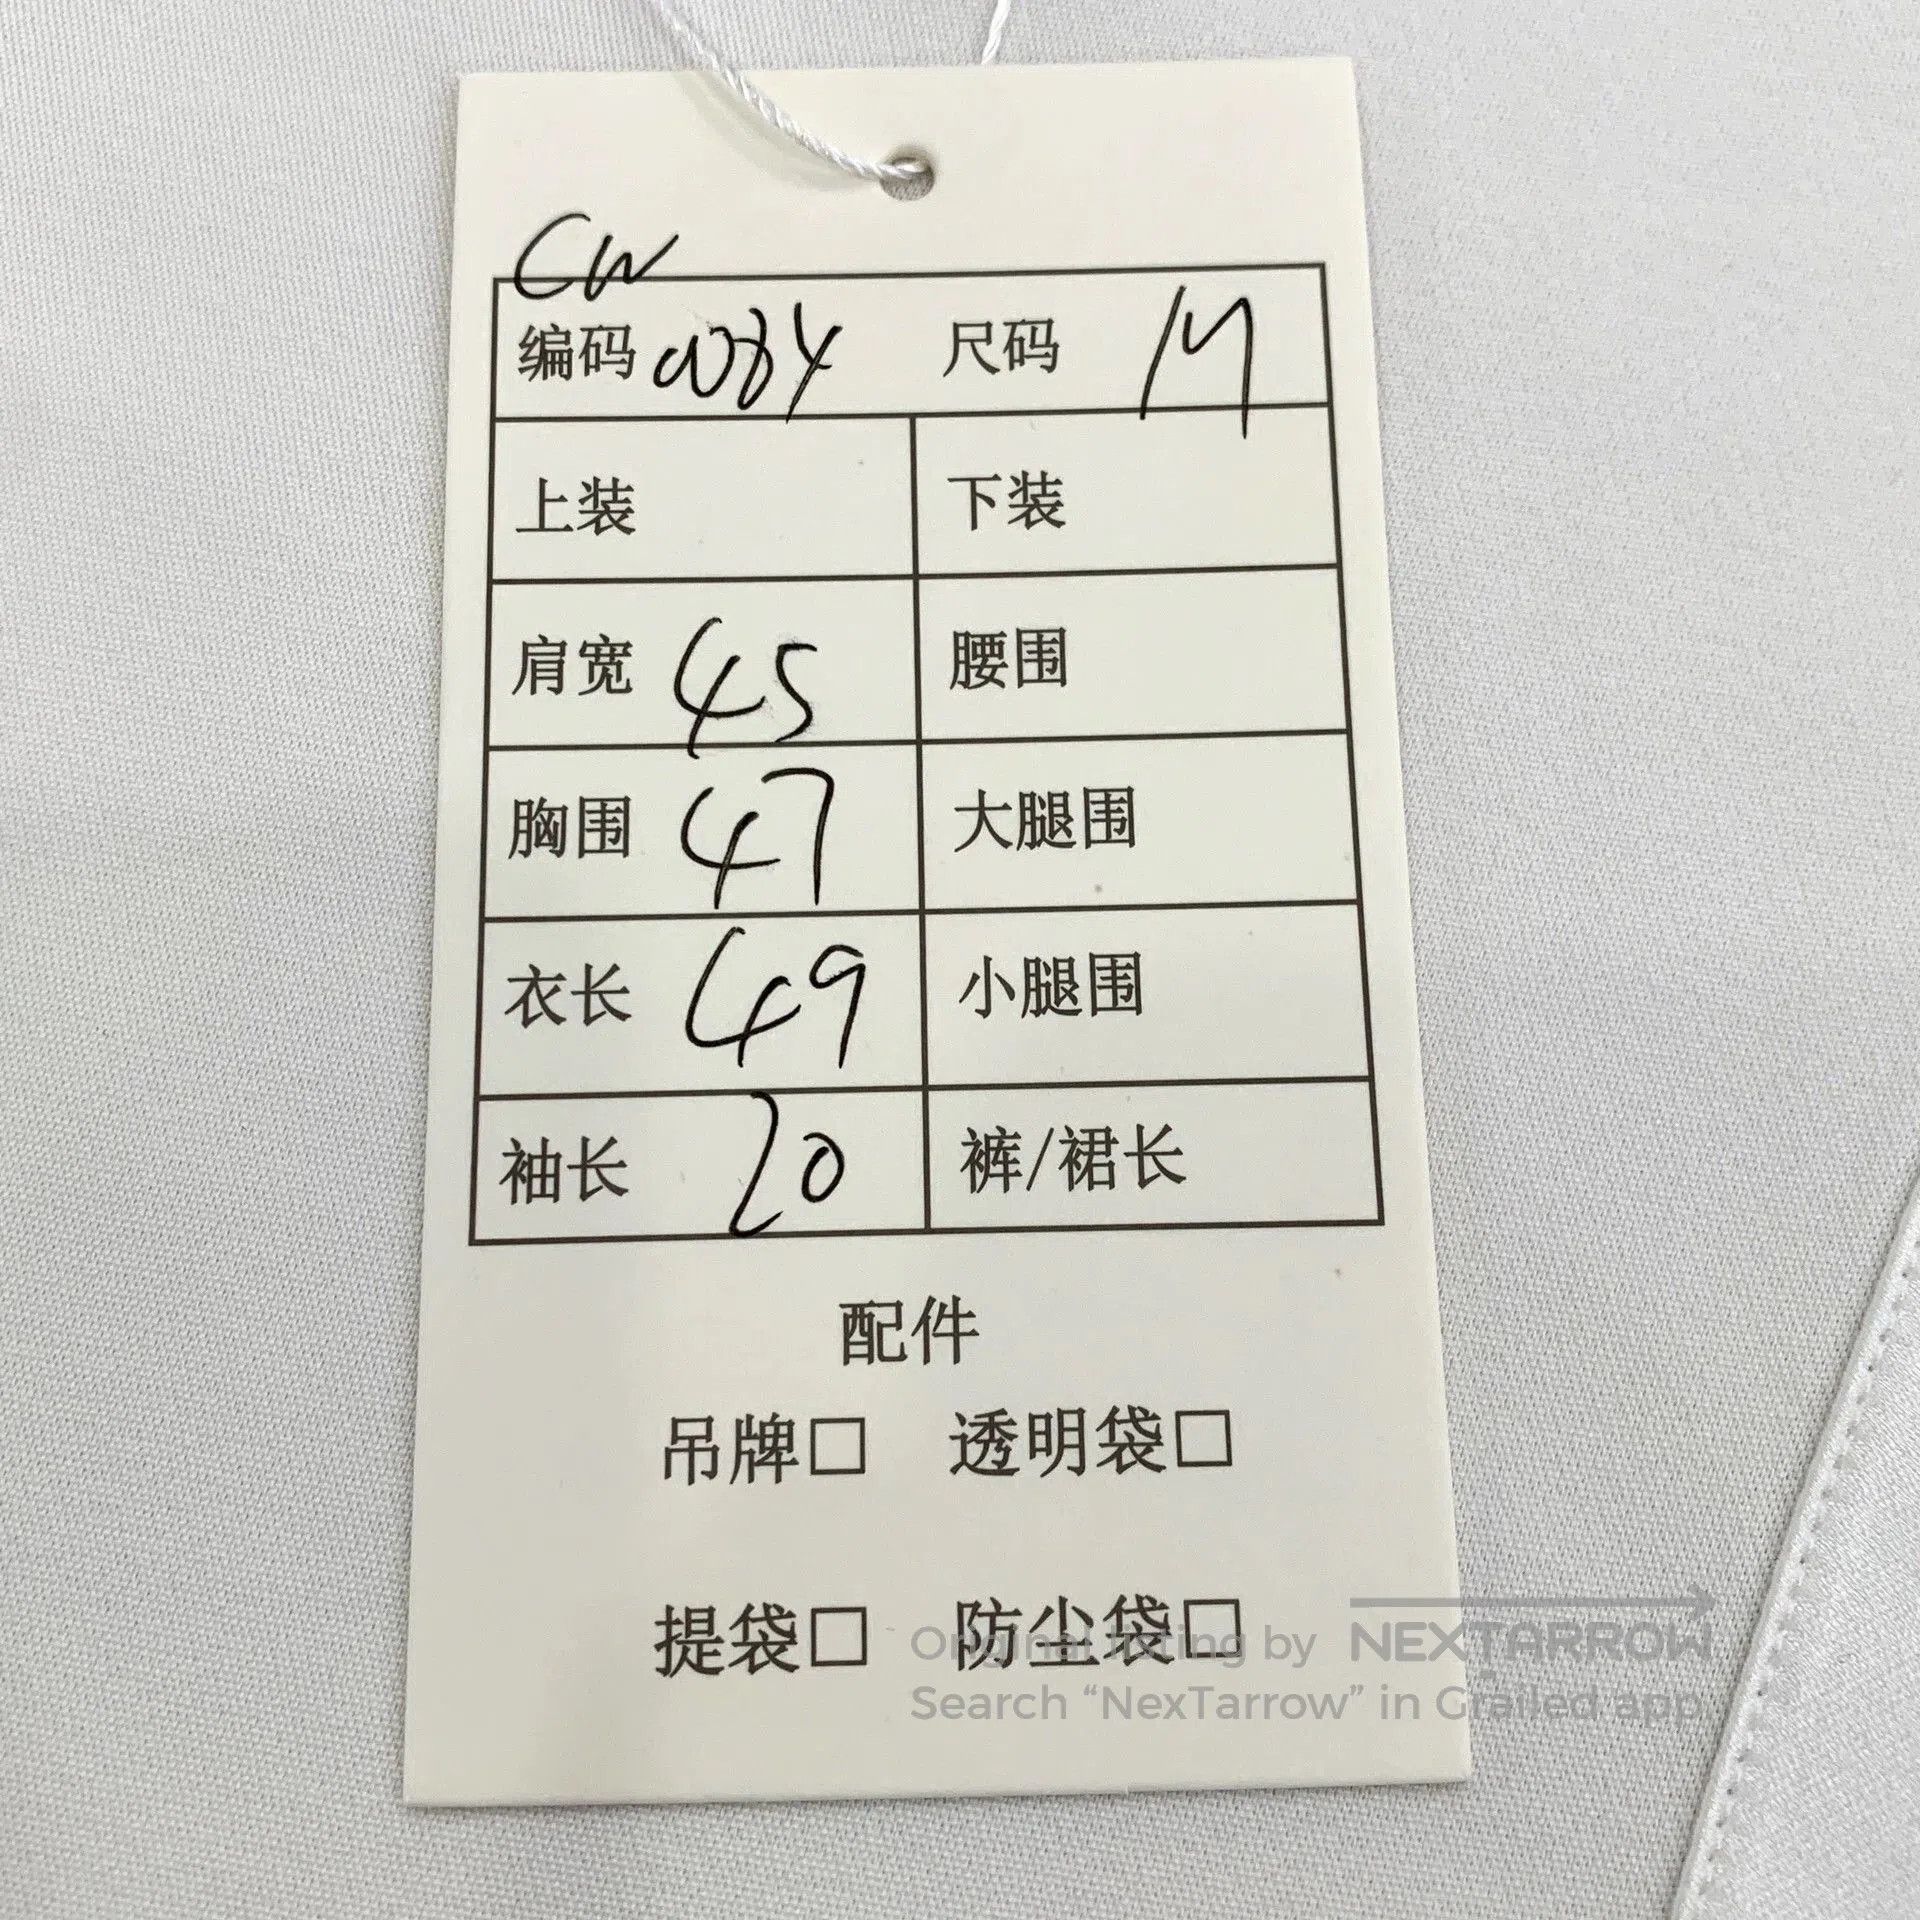 CW
编码 0084 尺码 M
上装 下装
肩宽 45 腰围
胸围 47 大腿围
衣长 49 小腿围
袖长 20 裤/裙长
配件
吊牌□ 透明袋□
提袋□ 防尘袋□
Original listing by NEXTARROW
Search “NexTarrow” in Grailed app